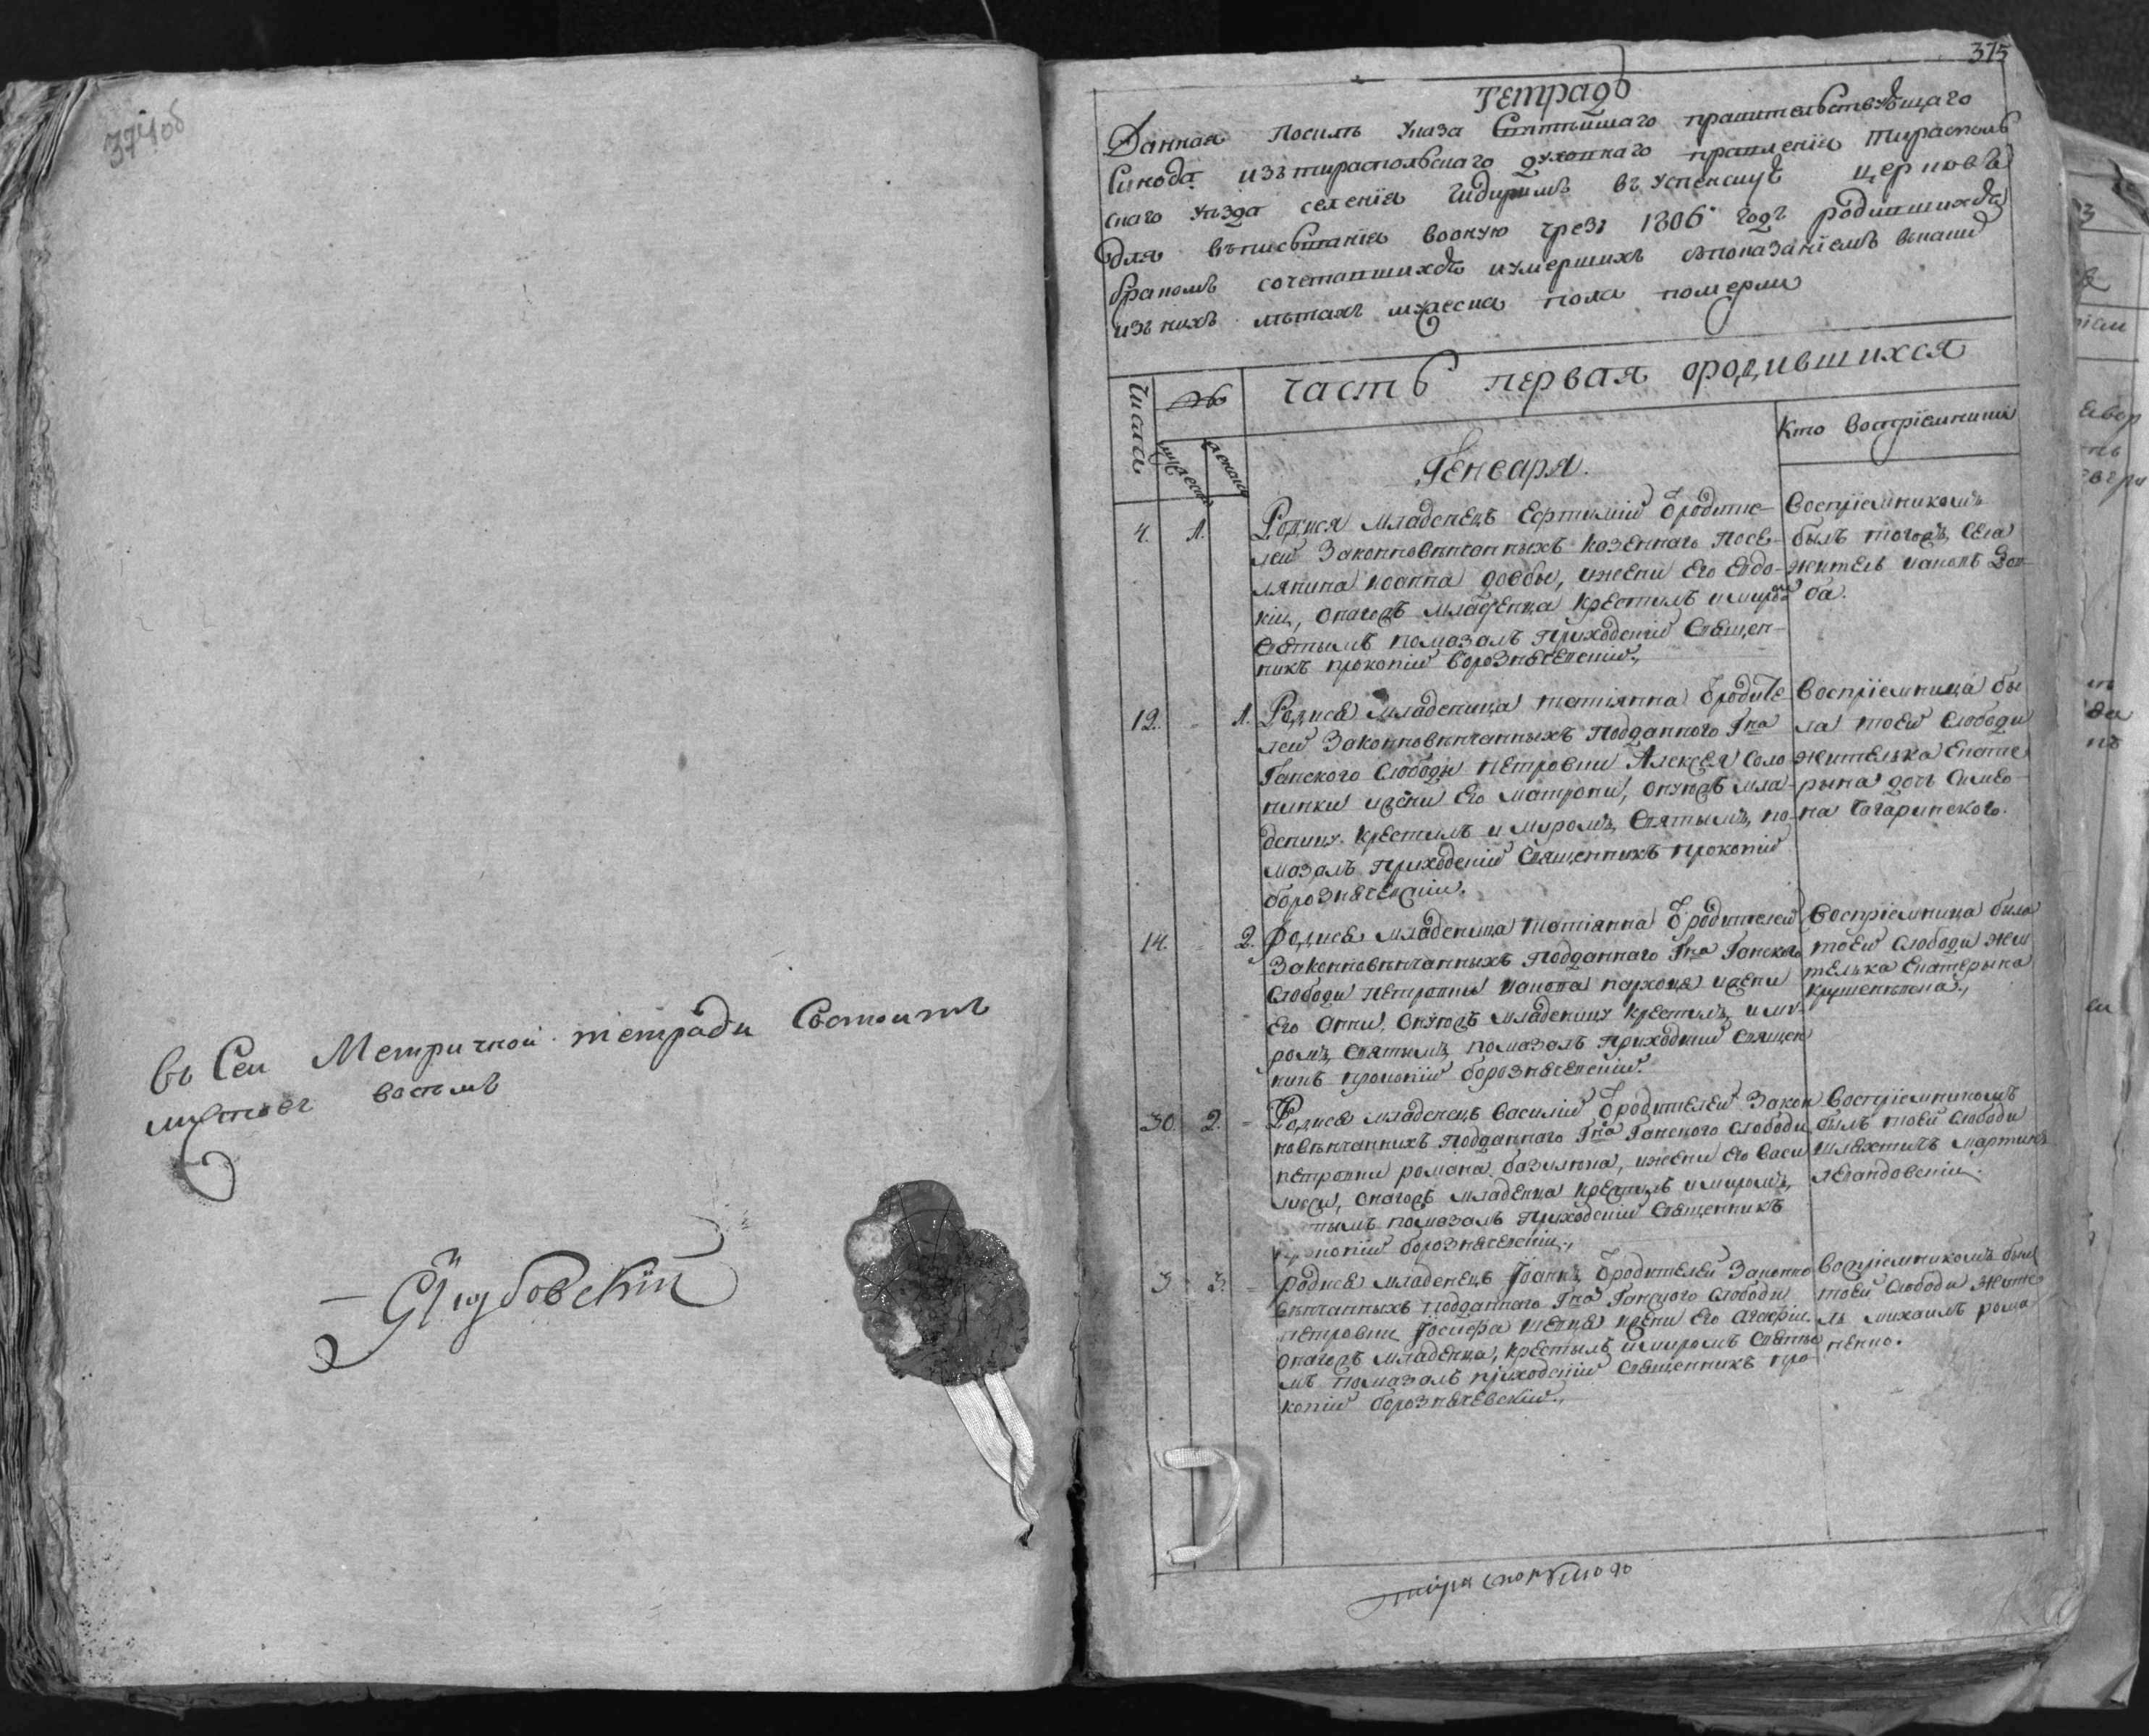 374об
въ Сеи Метричной тетради Состоитъ
листовъ восемъ
375
Тетрадь
Данная Посилѣ Указа Святѣишаго правительствующаго
Синода изътираспольскаго духовнаго правленія тирасполь
скаго уѣзда селенія Чидиримъ въ успенскую церковь
для въписыванія воокую чрезъ 1806 годъ родившихся
бракомъ сочетавшихся иумершихъ съпоказаніемъ вкакид
изънихъ лѣтахъ мужеска пола померли
часть первая ородившихся
Числа
мужеска
женска
Кто воспріемники
Генваря.
4. 1. Родися младенецъ Ефтимій Ѿродите-
лей Законновѣнчанныхъ казеннаго Посе-
лянина иоанна довбы, ижени его Евдо-
кіи, онагожъ младенца крестилъ имиром
святымъ помазалъ Приходскій Священ-
никъ прокопій
Воспріемникомъ
былъ тогожъ села
житель иаковъ Дов-
ба.
12. 1. Родися младеница татіянна Ѿродите
лей Законновѣнчанныхъ Подданного Гна
Ганского слободы Петровки Алексея Соло
нинки ижени его матрони, онуюжъ мла-
деницу крестилъ и миромъ, Святымъ, по-
мазалъ Приходскій Священникъ прокопій
Воспріемница бы
ла тоей слободи
жителька Екате
рына дочъ Симео-
на Чагаринского.
14. 2. Родися младеница татіянна Ѿродителей
Законновѣнчанныхъ Подданнаго Гна Ганского
слободи Петровки иакова ижени
его Анни, онуюжъ младеницу крестилъ, и ми-
ромъ, святымъ помазалъ Приходский Священ
никъ прокопій
Воспріемница била
тоей слободи жи
телька Екатерына

30. 2. Родися младенецъ Василій Ѿродителей Закон
новѣнчаннихъ Подданнаго Гна Ганского слободи
петровки романа ижени его Васи
лиси, онагожъ младенца крестилъ имиромъ,
тымъ помазалъ Приходскій Священникъ
прокопій
Воспріемникомъ
былъ тоей слободи
шляхтичъ мартинъ
левандовскій.
3 3. родися младенецъ Іоаннъ Ѿродителей Законно
вѣнчанныхъ Подданнаго Гна Ганского слободи
петровки Іосифа ижени его Агафіи
онагожъ младенца, крестилъ имиромъ святы
мъ помазалъ приходскій Священникъ про
копій
Воспріемникомъ былъ
тоей слободи жите
ль михаилъ рома
ненко.